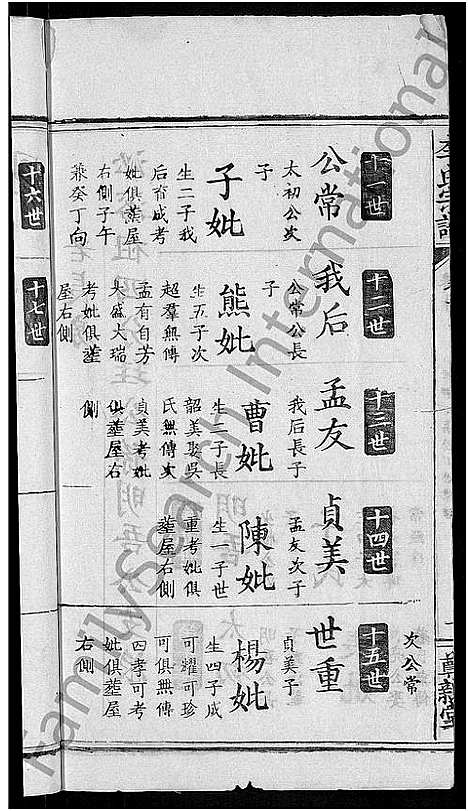 次公常
十一世
公常
太初公次
子
子妣
生二子我
后 育成考
妣俱葬屋
右側子午
兼癸丁向
十二世
我后
公常公長
子
熊妣
生五子次
超羣無傳
孟有自芳
大盛大瑞
考妣俱塟
屋右側
十三世
孟友
我后長子
曹妣
生二子長
韶美娶吳
氏無傳次
貞美考妣
俱塟屋右
側
十四世
貞美
孟友次子
陳妣
生一子世
重考妣俱
塟屋右側
十五世
世重
貞美子
楊妣
生四子成
可耀可珍
可俱無傳
四孝可考
妣俱塟屋
右側
十六世
十七世
FamilySearch International